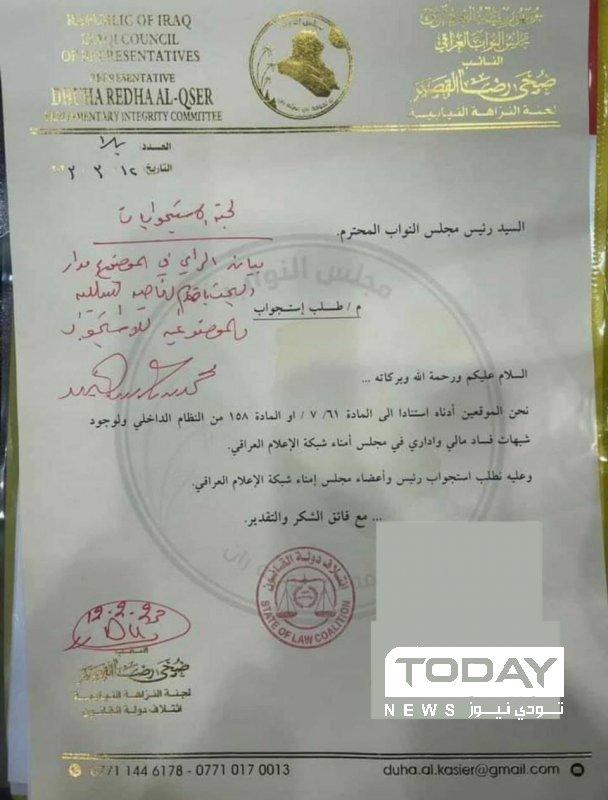 REPUBLIC OF IRAQ
IRAQI COUNCIL
OF REPRESENTATIVES
REPRESENTATIVE
DHUHA REDHA AL-QSER
PARLIAMENTARY INTEGRITY COMMITTEE
مجلس النواب العراقي
النائب
ضحى رضا القصير
لجنة النزاهة النيابية
العدد:
التاريخ: ١٢ ٢
السيد رئيس مجلس النواب المحترم.
لجنة الاستجوابات
بيان الرأي في الموضوع مدار
م/ طلب إستجواب
السلام عليكم ورحمة الله وبركاته ...
نحن الموقعين أدناه استنادا الى المادة ٦١/ ٧ / او المادة ١٥٨ من النظام الداخلي ولوجود
شبهات فساد مالي واداري في مجلس أمناء شبكة الإعلام العراقي.
وعليه نطلب استجواب رئيس وأعضاء مجلس إمناء شبكة الإعلام العراقي.
... مع فائق الشكر والتقدير.
ائتلاف دولة القانون
STATE OF LAW COALITION
12-2-23
النائب
ضحى رضا القصير
لجنة النزاهة النيابية
ائتلاف دولة القانون
TODAY
NEWS تودي نيوز
0771 144 6178 - 0771 017 0013
duha.al.kasier@gmail.com